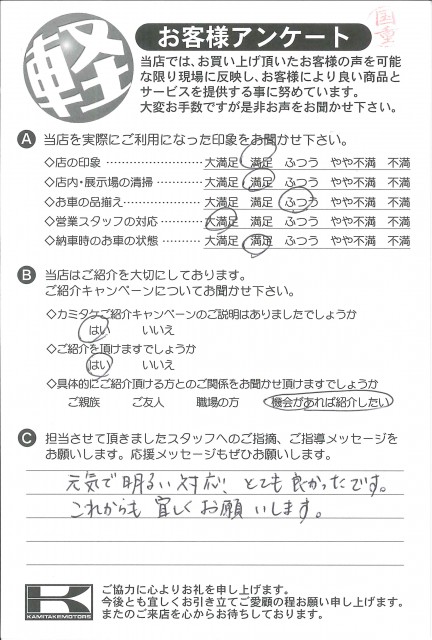 軽
お客様アンケート
当店では、お買い上げ頂いたお客様の声を可能
な限り現場に反映し、お客様により良い商品と
サービスを提供する事に努めています。
大変お手数ですが是非お声をお聞かせ下さい。
A 当店を実際にご利用になった印象をお聞かせ下さい。
◇店の印象 ………………………… 大満足 満足 ふつう やや不満 不満
◇店内・展示場の清掃 ………… 大満足 満足 ふつう やや不満 不満
◇お車の品揃え………………… 大満足 満足 ふつう やや不満 不満
◇営業スタッフの対応 ………… 大満足 満足 ふつう やや不満 不満
◇納車時のお車の状態 ………… 大満足 満足 ふつう やや不満 不満
B 当店はご紹介を大切にしております。
ご紹介キャンペーンについてお聞かせ下さい。
◇カミタケご紹介キャンペーンのご説明はありましたでしょうか
はい いいえ
◇ご紹介を頂けますでしょうか
はい いいえ
◇具体的にご紹介頂ける方とのご関係をお聞かせ頂けますでしょうか
ご親族 ご友人 職場の方 機会があれば紹介したい
C 担当させて頂きましたスタッフへのご指摘、ご指導メッセージを
お願いします。応援メッセージもぜひお願いします。
元気で明るい対応! とても良かったです。
これからも宜しくお願いします。
K
KAMITAKEMOTORS
ご協力に心よりお礼を申し上げます。
今後とも宜しくお引き立てご愛顧の程お願い申し上げます。
またのご来店を心からお待ちしております。